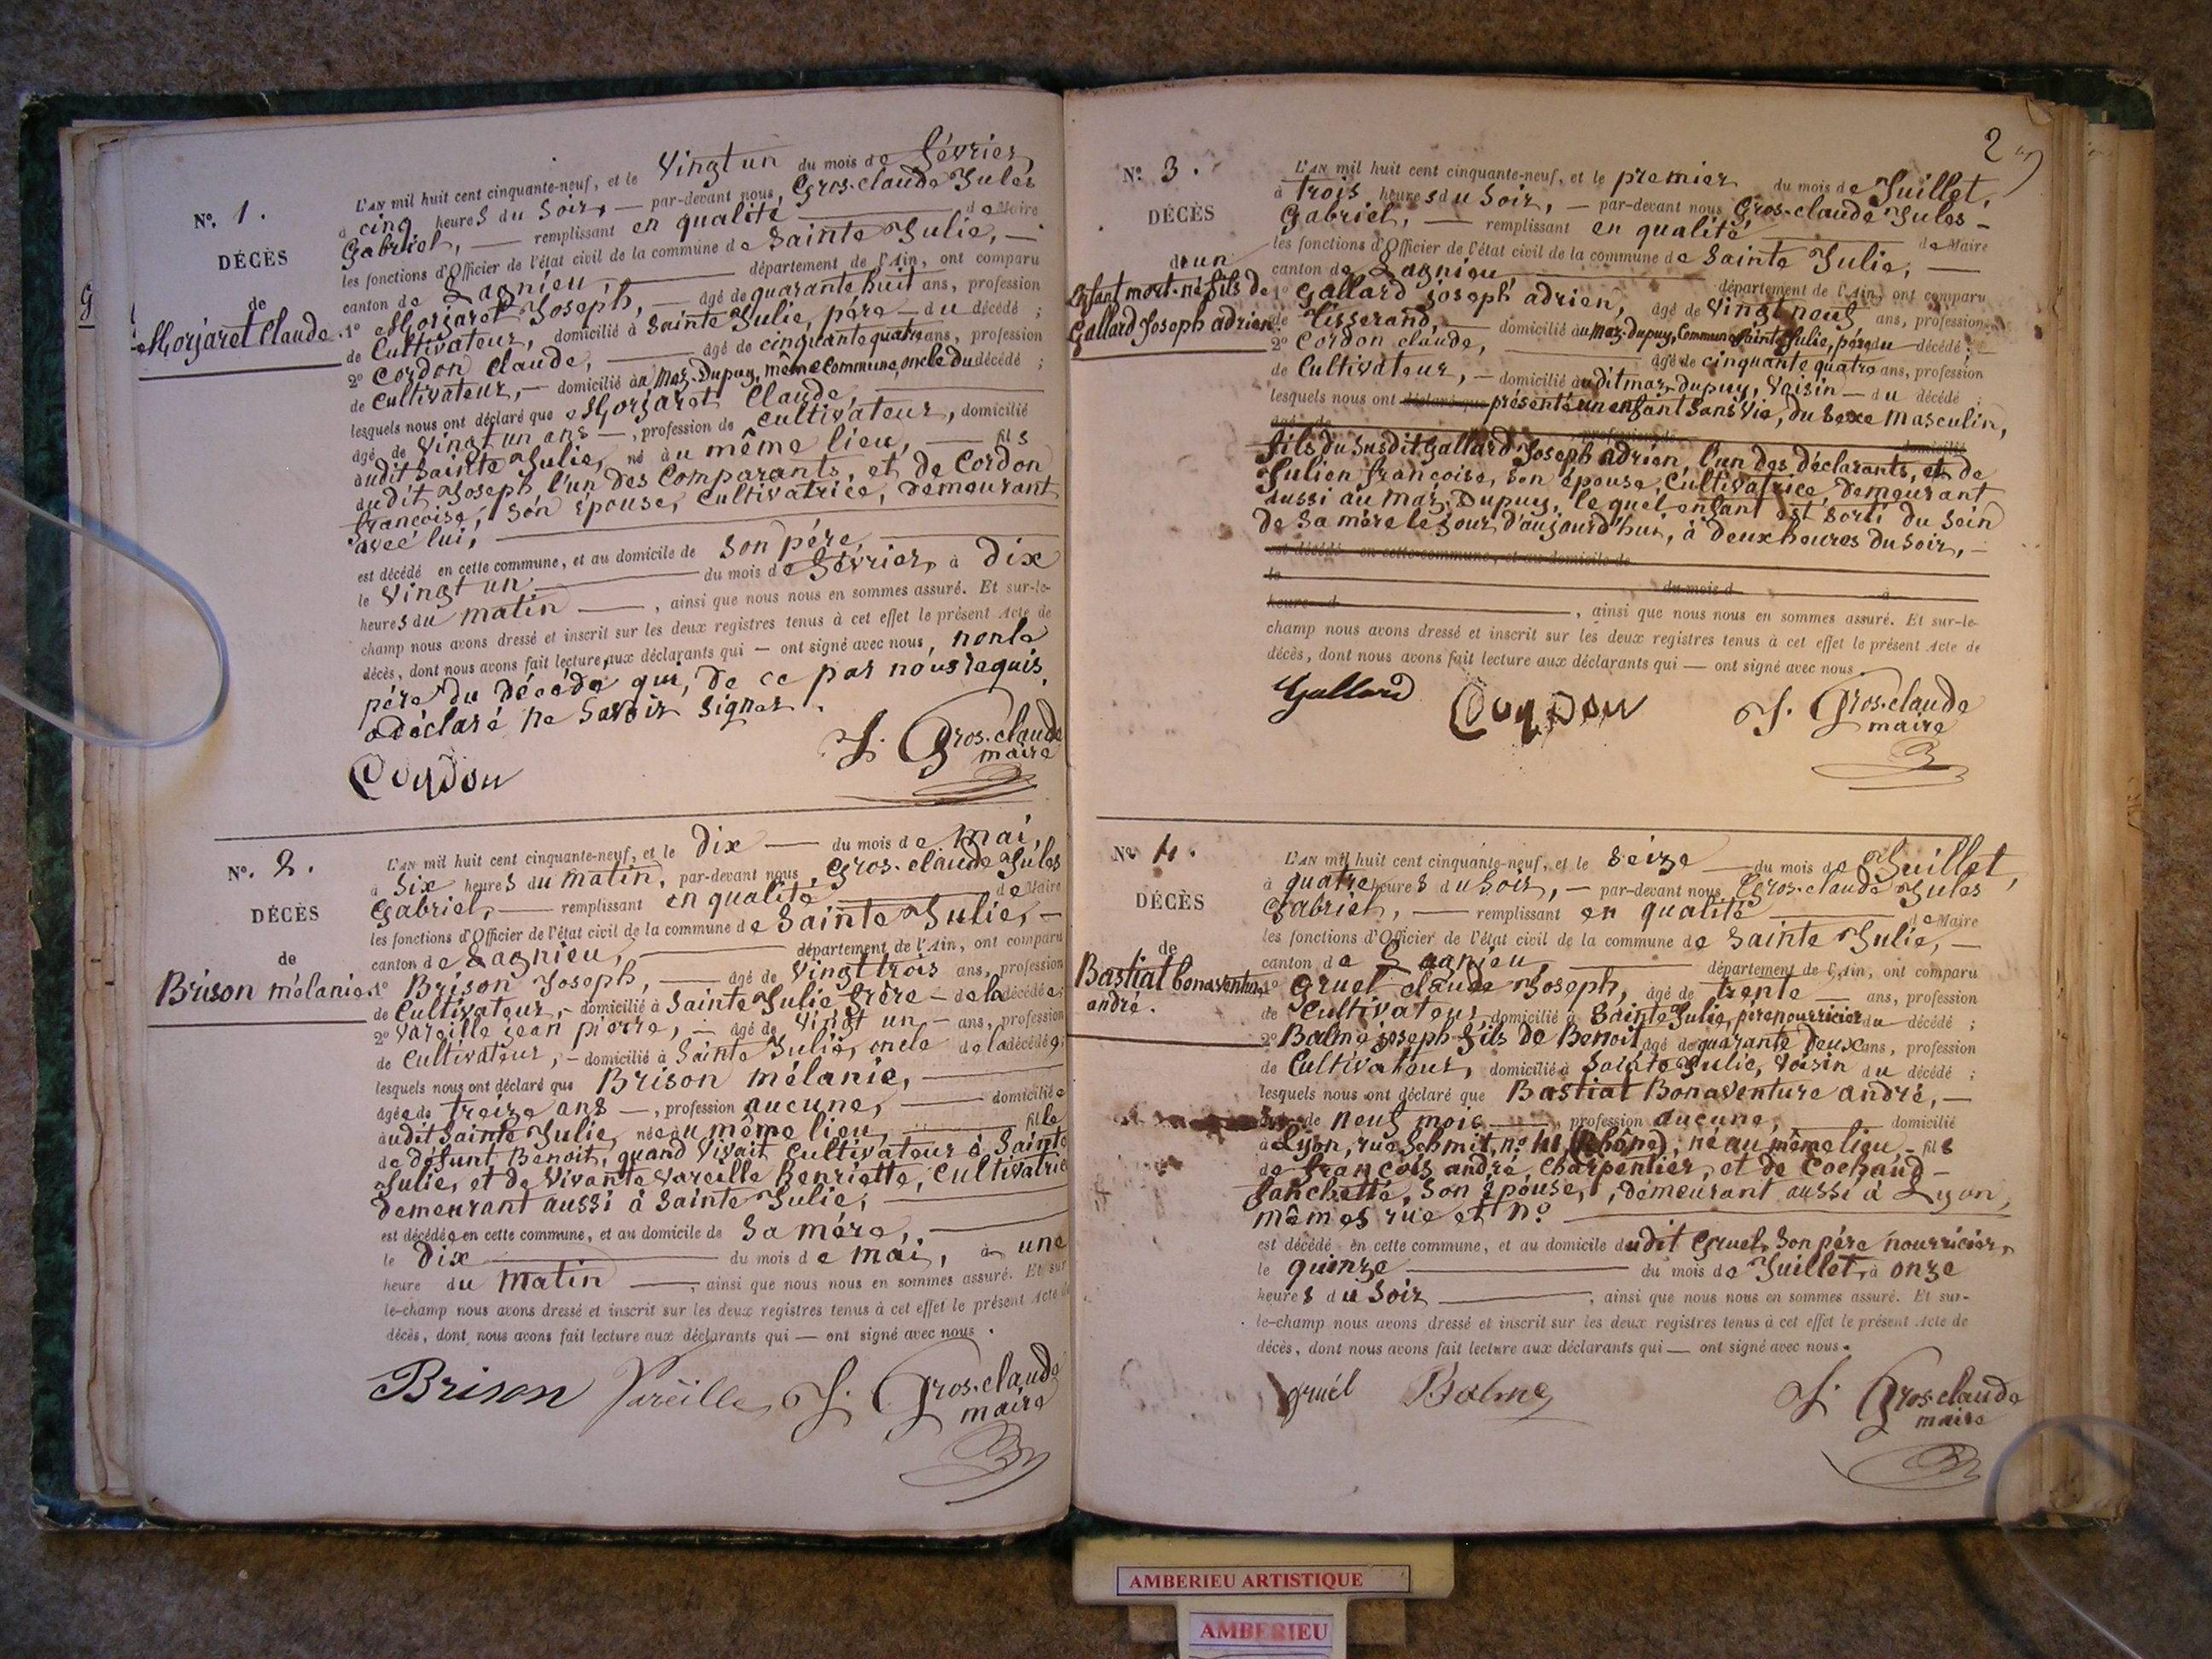 N.° 1.
DÉCÈS
de
Morjaret Claude.
L'AN mil huit cent cinquante-neuf, et le Vingt un du mois de février,
à cinq heures du soir, — par-devant nous, Gros-claude Jules
Gabriel, — remplissant en qualité de Maire
les fonctions d'Officier de l'état civil de la commune de Sainte Julie, —
canton de Lagnieu, département de l'Ain, ont comparu
1° Morjaret Joseph, — âgé de quarante huit ans, profession
de Cultivateur, domicilié à Sainte Julie, père — du décédé ;
2° Cordon Claude, âgé de cinquante quatre ans, profession
de Cultivateur, — domicilié au Maz-Dupuy, même Commune, oncle du décédé ;
lesquels nous ont déclaré que Morjaret Claude,
âgé de Vingt un ans —, profession de Cultivateur, domicilié
audit Sainte Julie, né au même lieu, — fils
audit Joseph l'un des Comparants, et de Cordon
françoise, son épouse, Cultivatrice, demeurant
avec lui,
est décédé en cette commune, et au domicile de son père,
le Vingt un du mois de février, à dix
heures du matin —, ainsi que nous nous en sommes assuré. Et sur-le-
champ nous avons dressé et inscrit sur les deux registres tenus à cet effet le présent Acte de
décès, dont nous avons fait lecture aux déclarants qui — ont signé avec nous, non le
père du décédé qui, de ce par nous requis,
a déclaré ne savoir signer.
Cordon
J. Gros-claude
maire
N.° 2.
DÉCÈS
de
Brison mélanie.
L'AN mil huit cent cinquante-neuf, et le dix — du mois de mai,
à six heures du matin, par-devant nous, Gros-claude Jules
Gabriel, — remplissant en qualité de Maire
les fonctions d'Officier de l'état civil de la commune de Sainte Julie, —
canton de Lagnieu, département de l'Ain, ont comparu
1° Brison Joseph, — âgé de Vingt trois ans, profession
de Cultivateur, — domicilié à Sainte Julie frère — de la décédée ;
2° Vareille jean pierre, — âgé de Vingt un — ans, profession
de Cultivateur, — domicilié à Sainte Julie, oncle de la décédée ;
lesquels nous ont déclaré que Brison mélanie,
âgée de treize ans —, profession aucune, domiciliée
audit Sainte Julie, née au même lieu, fille
de défunt Benoit, quand vivait Cultivateur à Sainte
Julie, et de vivante Vareille henriette, Cultivatrice
demeurant aussi à Sainte Julie,
est décédée en cette commune, et au domicile de sa mère,
le dix du mois de mai, à une
heure du matin —, ainsi que nous nous en sommes assuré. Et sur
le-champ nous avons dressé et inscrit sur les deux registres tenus à cet effet le présent Acte de
décès, dont nous avons fait lecture aux déclarants qui — ont signé avec nous.
Brison Vareille J. Gros-claude
maire
2
N.° 3.
DÉCÈS
d'un
Enfant mort-né fils de
Gallard Joseph adrien.
L'AN mil huit cent cinquante-neuf, et le premier du mois de Juillet,
à trois heures du soir, — par-devant nous Gros-claude Jules —
Gabriel, — remplissant en qualité de Maire
les fonctions d'Officier de l'état civil de la commune de Sainte Julie, —
canton de Lagnieu département de l'Ain, ont comparu
1° Gallard joseph adrien, âgé de Vingt neuf ans, profession
de tisserand, — domicilié au Maz-Dupuy, Commune Sainte Julie, père du décédé ;
2° Cordon claude, âgé de cinquante quatre ans, profession
de Cultivateur, — domicilié audit maz-Dupuy, Voisin — du décédé ;
lesquels nous ont déclaré que présenté un enfant sans vie, du sexe masculin,
âgé de profession de domicilié
fils du susdit Gallard Joseph adrien, l'un des déclarants, et de
Julien françoise, son épouse, Cultivatrice, demeurant
aussi au maz-Dupuy, le quel enfant est sorti du sein
de sa mère le jour d'aujourd'hui, à deux heures du soir, —
est décédé en cette commune, et au domicile de
le du mois d à
heure d , ainsi que nous nous en sommes assuré. Et sur-le-
champ nous avons dressé et inscrit sur les deux registres tenus à cet effet le présent Acte de
décès, dont nous avons fait lecture aux déclarants qui — ont signé avec nous.
Gallard Cordon J. Gros-claude
maire
N.° 4.
DÉCÈS
de
Bastiat bonaventure
andré.
L'AN mil huit cent cinquante-neuf, et le seize — du mois de Juillet,
à quatre heures du soir, — par-devant nous Gros-claude Jules
Gabriel, — remplissant en qualité de Maire
les fonctions d'Officier de l'état civil de la commune de Sainte Julie, —
canton de Lagnieu, département de l'Ain, ont comparu
1° Gruel claude Joseph, âgé de trente — ans, profession
de Cultivateur domicilié à Sainte Julie, père nourricier du décédé ;
2° Balme joseph fils de Benoit âgé de quarante deux ans, profession
de Cultivateur, domicilié à Sainte Julie, Voisin du décédé ;
lesquels nous ont déclaré que Bastiat Bonaventure andré, —
de neuf mois —, profession aucune, domicilié
à Lyon, rue Schmit, n.° (Rhône), né au même lieu, — fils
de françois andré, charpentier, et de Cochaud —
fanchette, son épouse, demeurant aussi à Lyon,
mêmes rue et n.°
est décédé en cette commune, et au domicile dudit Gruel, son père nourricier,
le quinze du mois de Juillet, à onze
heures du soir, ainsi que nous nous en sommes assuré. Et sur-
le-champ nous avons dressé et inscrit sur les deux registres tenus à cet effet le présent Acte de
décès, dont nous avons fait lecture aux déclarants qui — ont signé avec nous.
gruél Balme J. Gros-claude
maire
G
AMBERIEU ARTISTIQUE
AMBERIEU